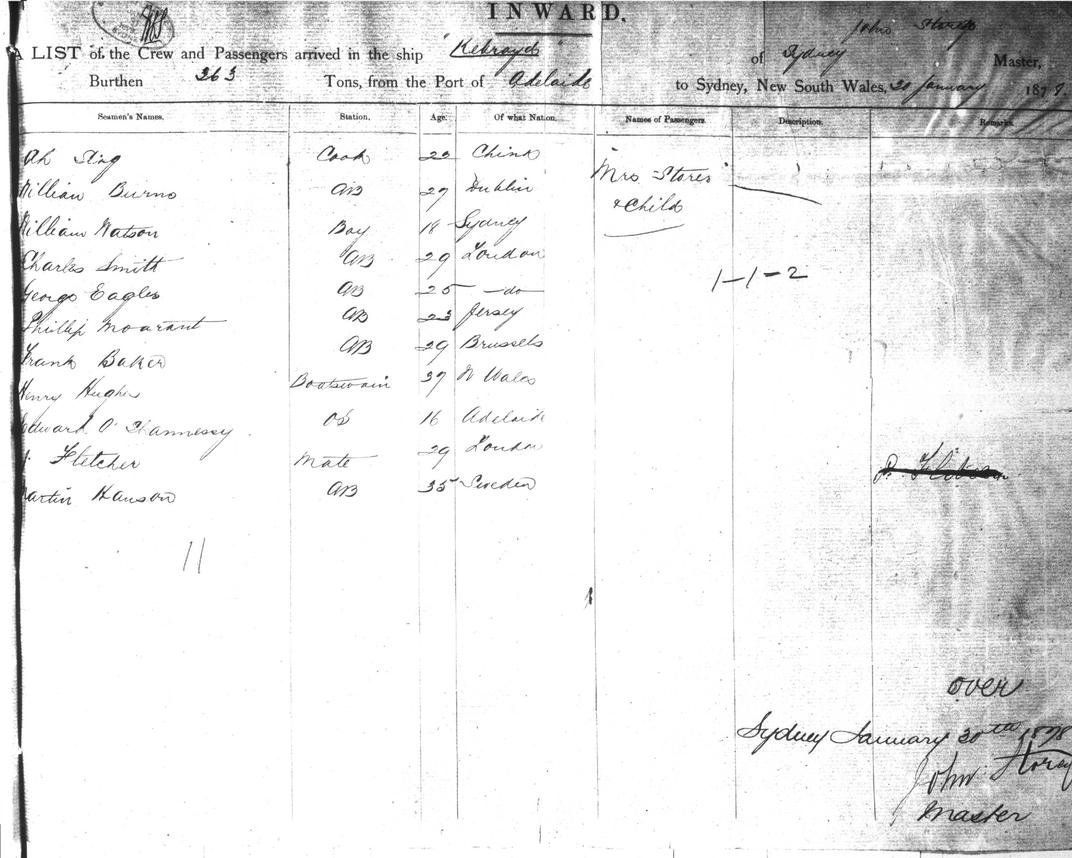 INWARD.
A LIST of the Crew and Passengers arrived in the ship "Kebroyd" of Sydney John Storey Master,
Burthen 363 Tons, from the Port of Adelaide to Sydney, New South Wales, 30 January 1878.
Seamen's Names. Station. Age. Of what Nation. Names of Passengers. Description. Remarks.
Ah Sing Cook 22 China
William Burns AB 27 Dublin Mrs Stores
& Child
William Watson Boy Sydney
Charles Smith AB 29 London
1-1-2
George Eagles AB 25 -do-
Phillip Mourant AB 23 Jersey
Frank Baker AB 29 Brussels
Henry Hughes Boatswain 37 N Wales
Edward O'Shannessy OS 16 Adelaide
Fletcher Mate 29 London
Martin Hanson AB 35 Sweden
11
over
Sydney January 30th 1878
John Storey
Master